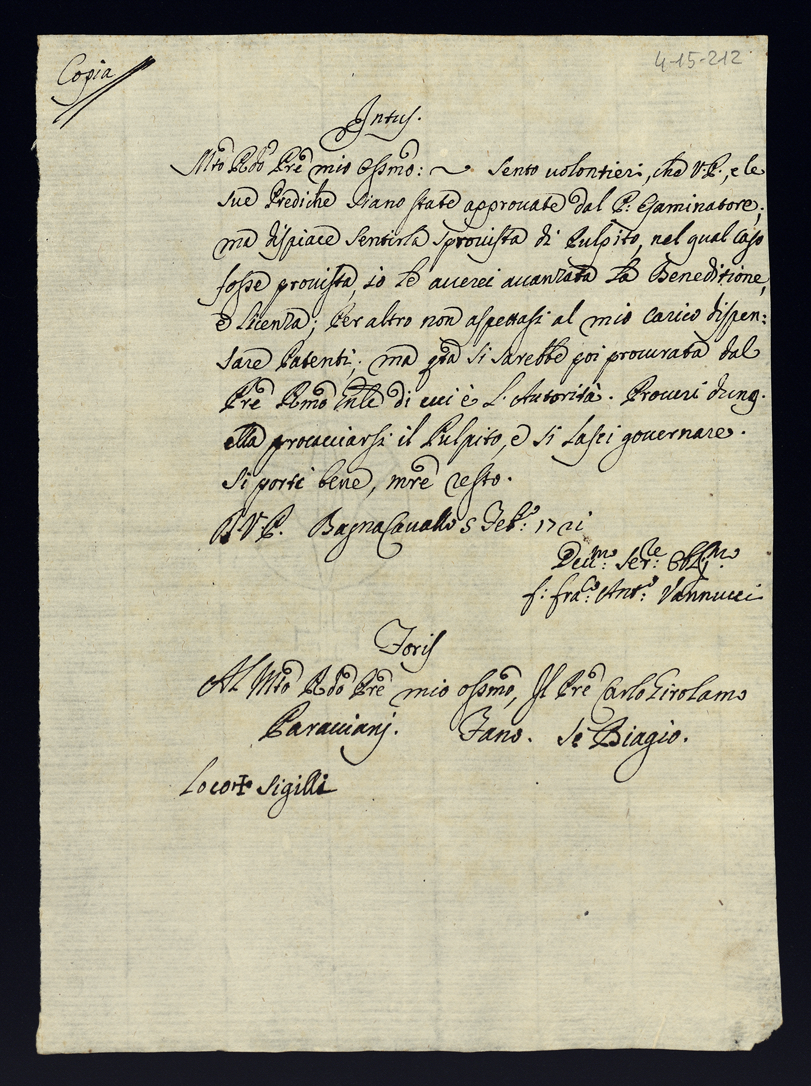 Copia
4-15-212
Intus.
Mto Rdo Pre mio ossmo: ~ Sento uolontieri, che V: P., e le
sue Prediche siano state approuate dal P: Esaminatore;
ma dispiace sentirla sprouista di Pulpito, nel qual caso
fosse prouista, io le auerei auanzata la Beneditione,
e licenza; Per altro non aspettasi al mio carico dispen:
sare Patenti; ma qta si sarebbe poi procurata dal
Pre Rmo Gnle di cui è l'Autorità. Procuri dunq.
ella procacciarsi il Pulpito, e si lasci gouernare.
Si porti bene, mre resto.
D V. P. BagnaCauallo 5 Feb.o: 1721
Deu.mo: Ser.re: Obl.mo
f: fran.co Ant.o: Vannucci
Foris
Al Mto Rdo Pre mio ossmo, Il Pre Carlo Girolamo
Paracciani. Fano. Se Biagio.
Loco + Sigilli